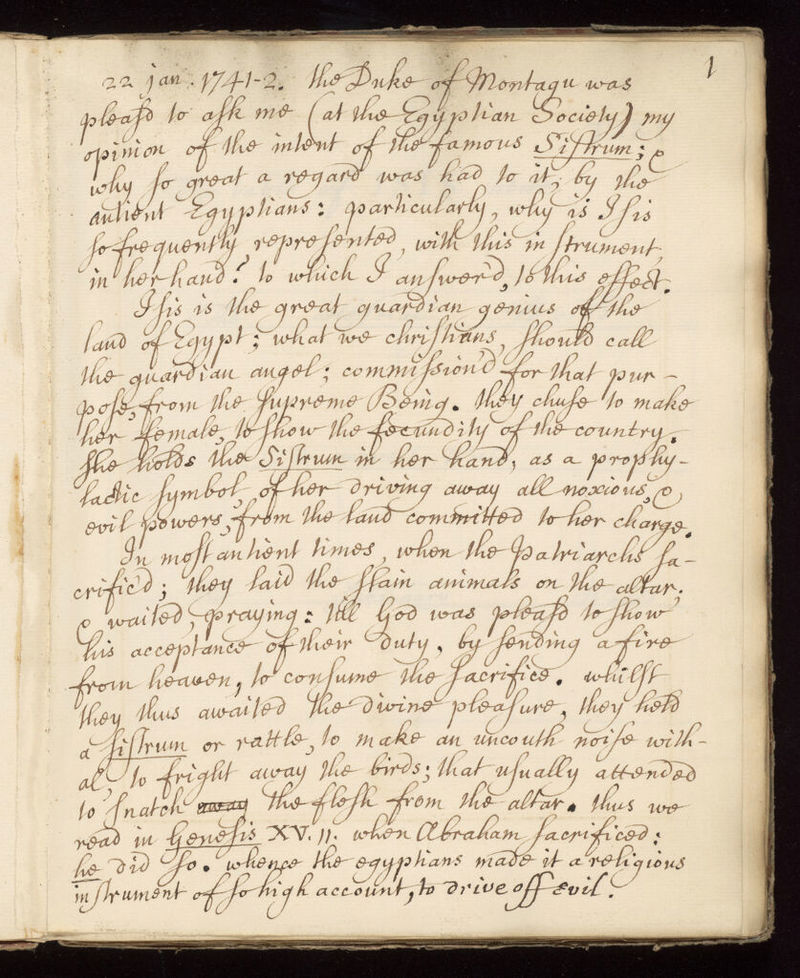 1
22 jan. 1741-2. the Duke of Montagu was
pleasd to ask me (at the Egyptian Society) my
opinion of the intent of the famous Sistrum; &
why so great a regard was had to it, by the
antient Egyptians: particularly, why is Isis
so frequently represented, with this instrument,
in her hand? to which I answer'd, to this effect.
Isis is the great guardian genius of the
land of Egypt; what we christians, should call
the guardian angel; commission'd for that pur-
pose, from the supreme Being. they chuse to make
her female, to show the fecundity of the country.
she holds the Sistrum in her hand, as a prophy-
lactic symbol, of her driving away all noxious, &
evil powers, from the land committed to her charge.
In most antient times, when the Patriarchs sa-
crific'd; they laid the slain animals on the altar.
& waited, praying: till God was pleasd to show
his acceptance of their duty, by sending a fire
from heaven, to consume the sacrifice. whilst
they thus awaited the divine pleasure, they held
a sistrum or rattle, to make an uncouth noise with-
al, to fright away the birds; that usually attended
to snatch away the flesh from the altar. thus we
read in Genesis XV. 11. when Abraham sacrificed:
he did so. whence the egyptians made it a religious
instrument of so high account, to drive off evil.